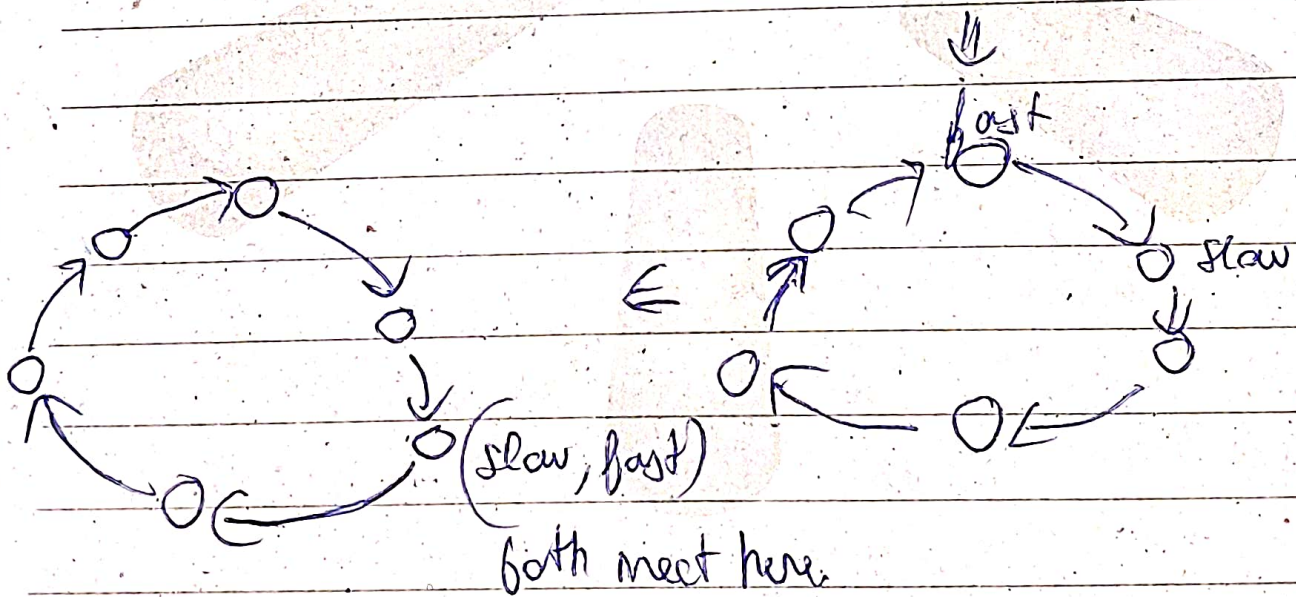 fast
slow
(slow, fast)
both meet here.